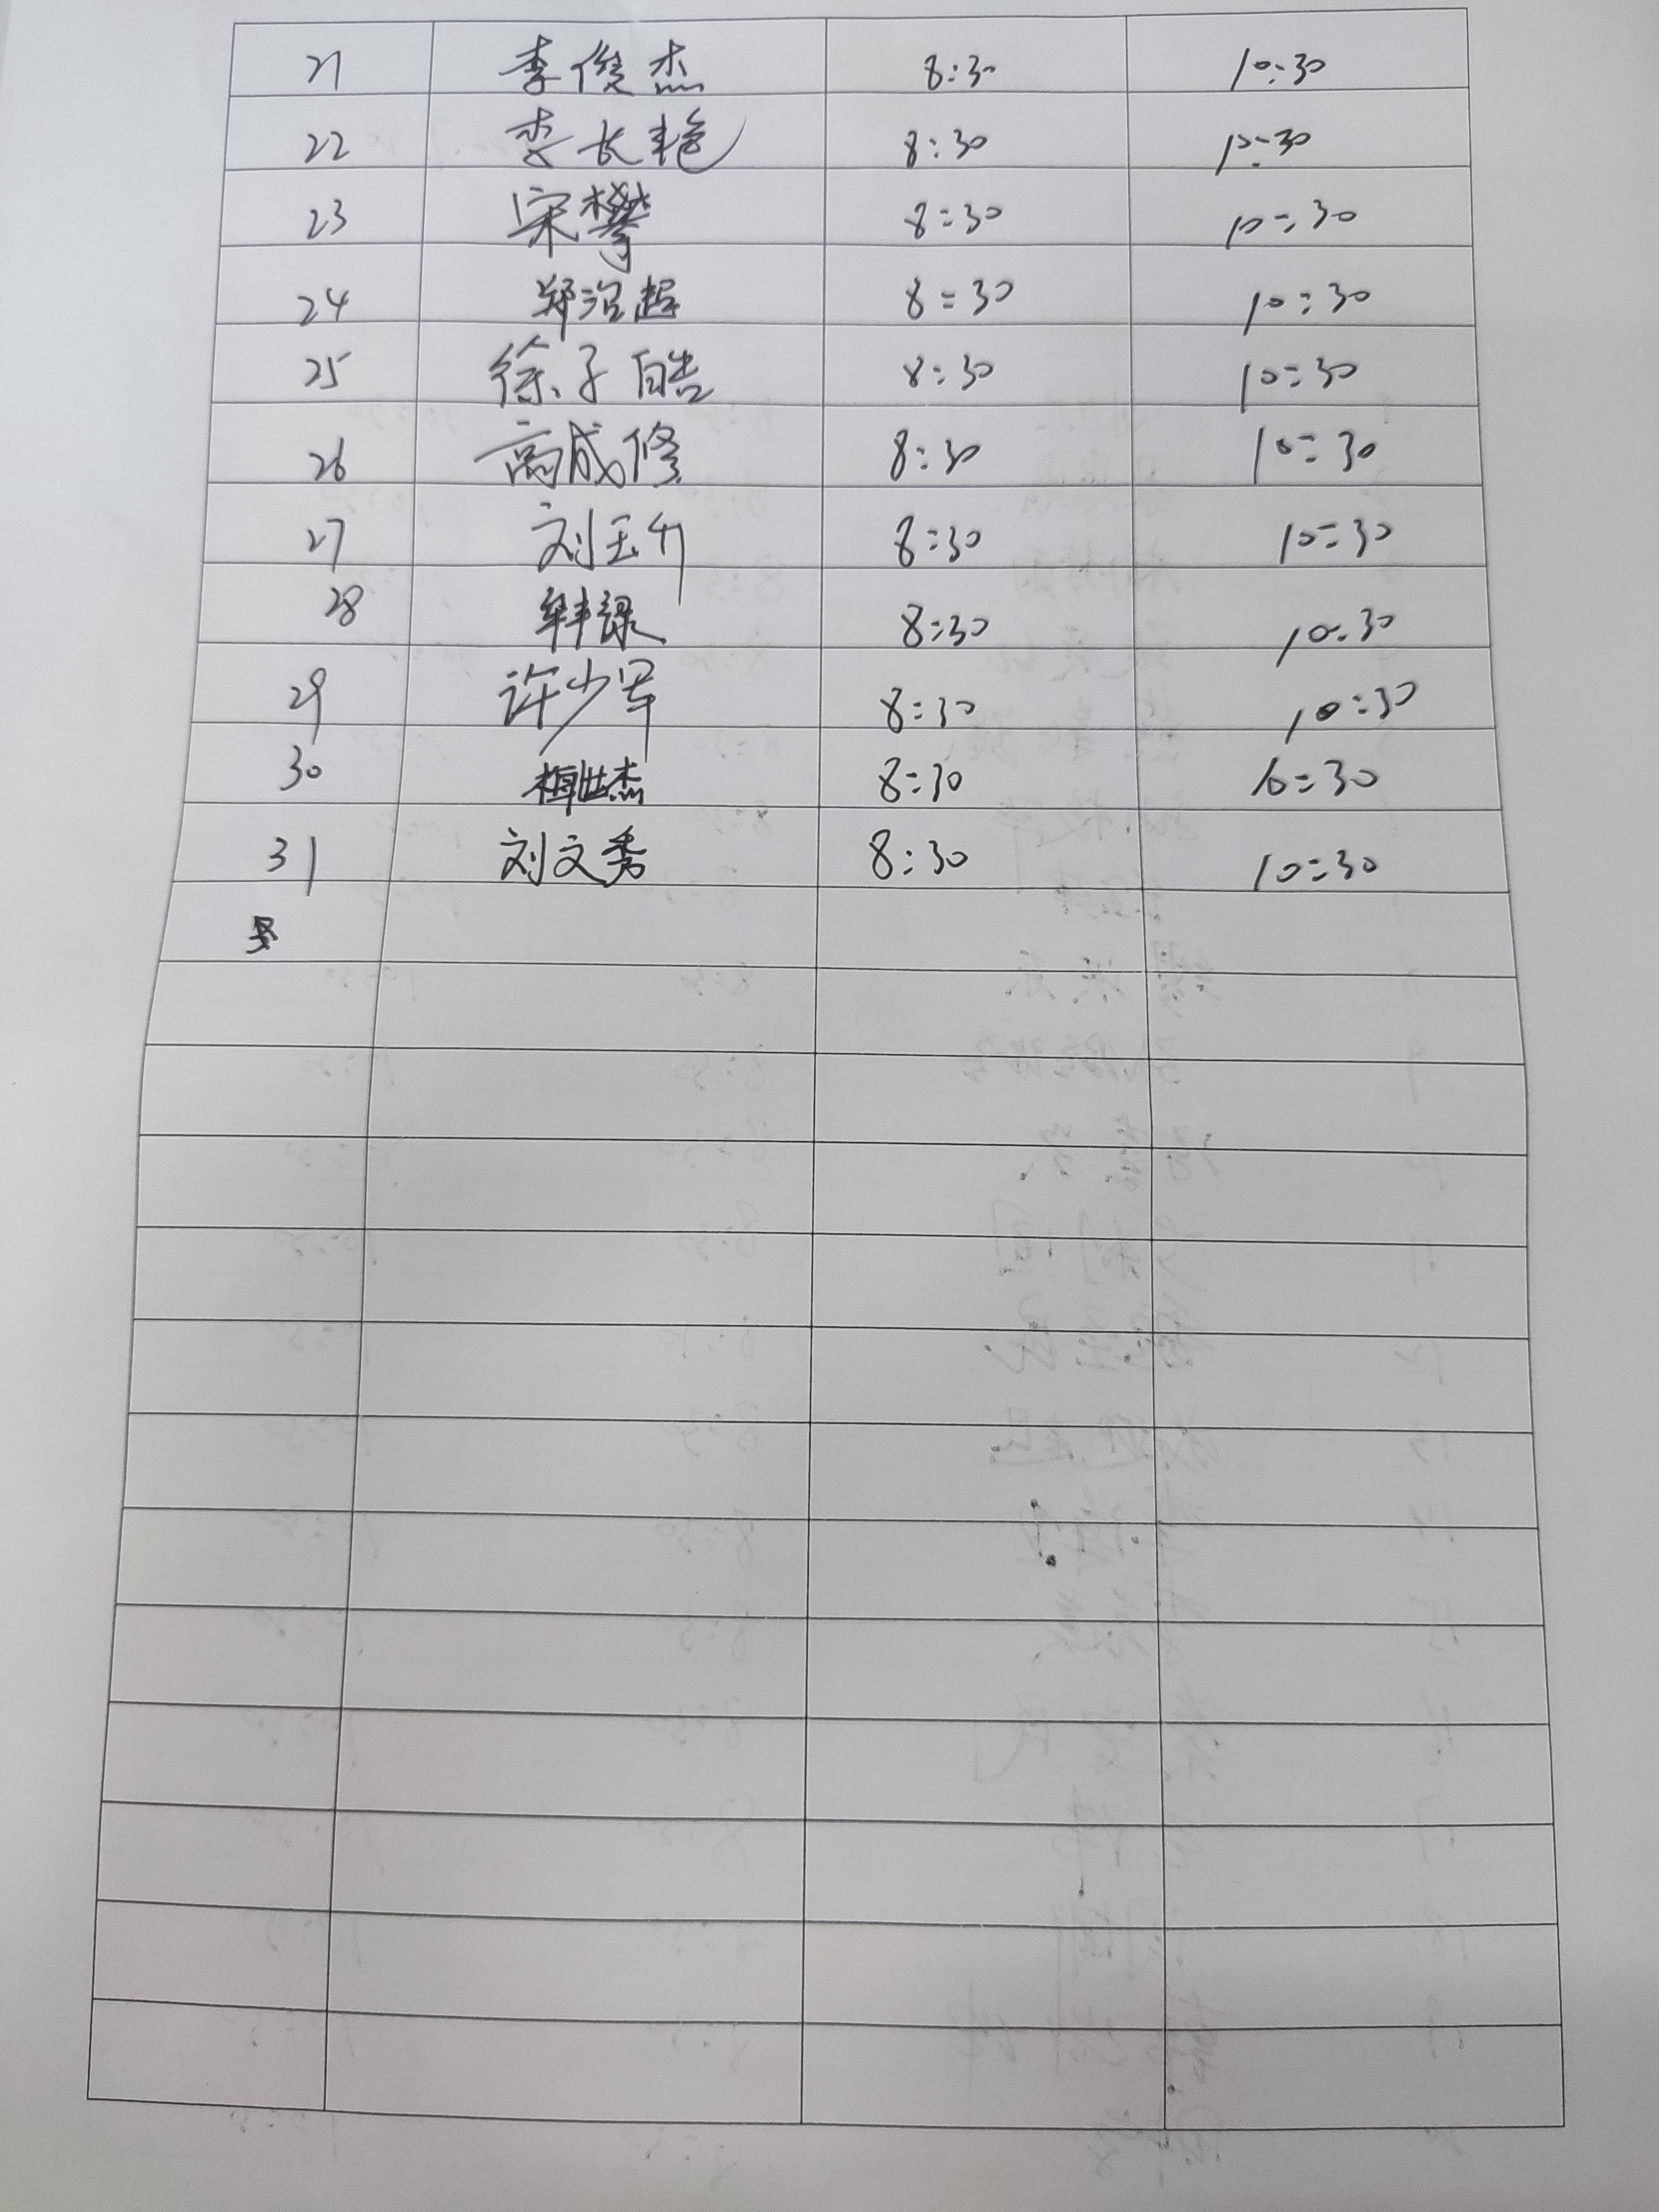 21 李俊杰 8:30 10:30
22 李长艳 8:30 10:30
23 宋攀 8:30 10:30
24 郑治超 8:30 10:30
25 徐子皓 8:30 10:30
26 高成修 8:30 10:30
27 刘玉升 8:30 10:30
28 8:30 10:30
29 许少军 8:30 10:30
30 梅世杰 8:30 10:30
31 刘文秀 8:30 10:30